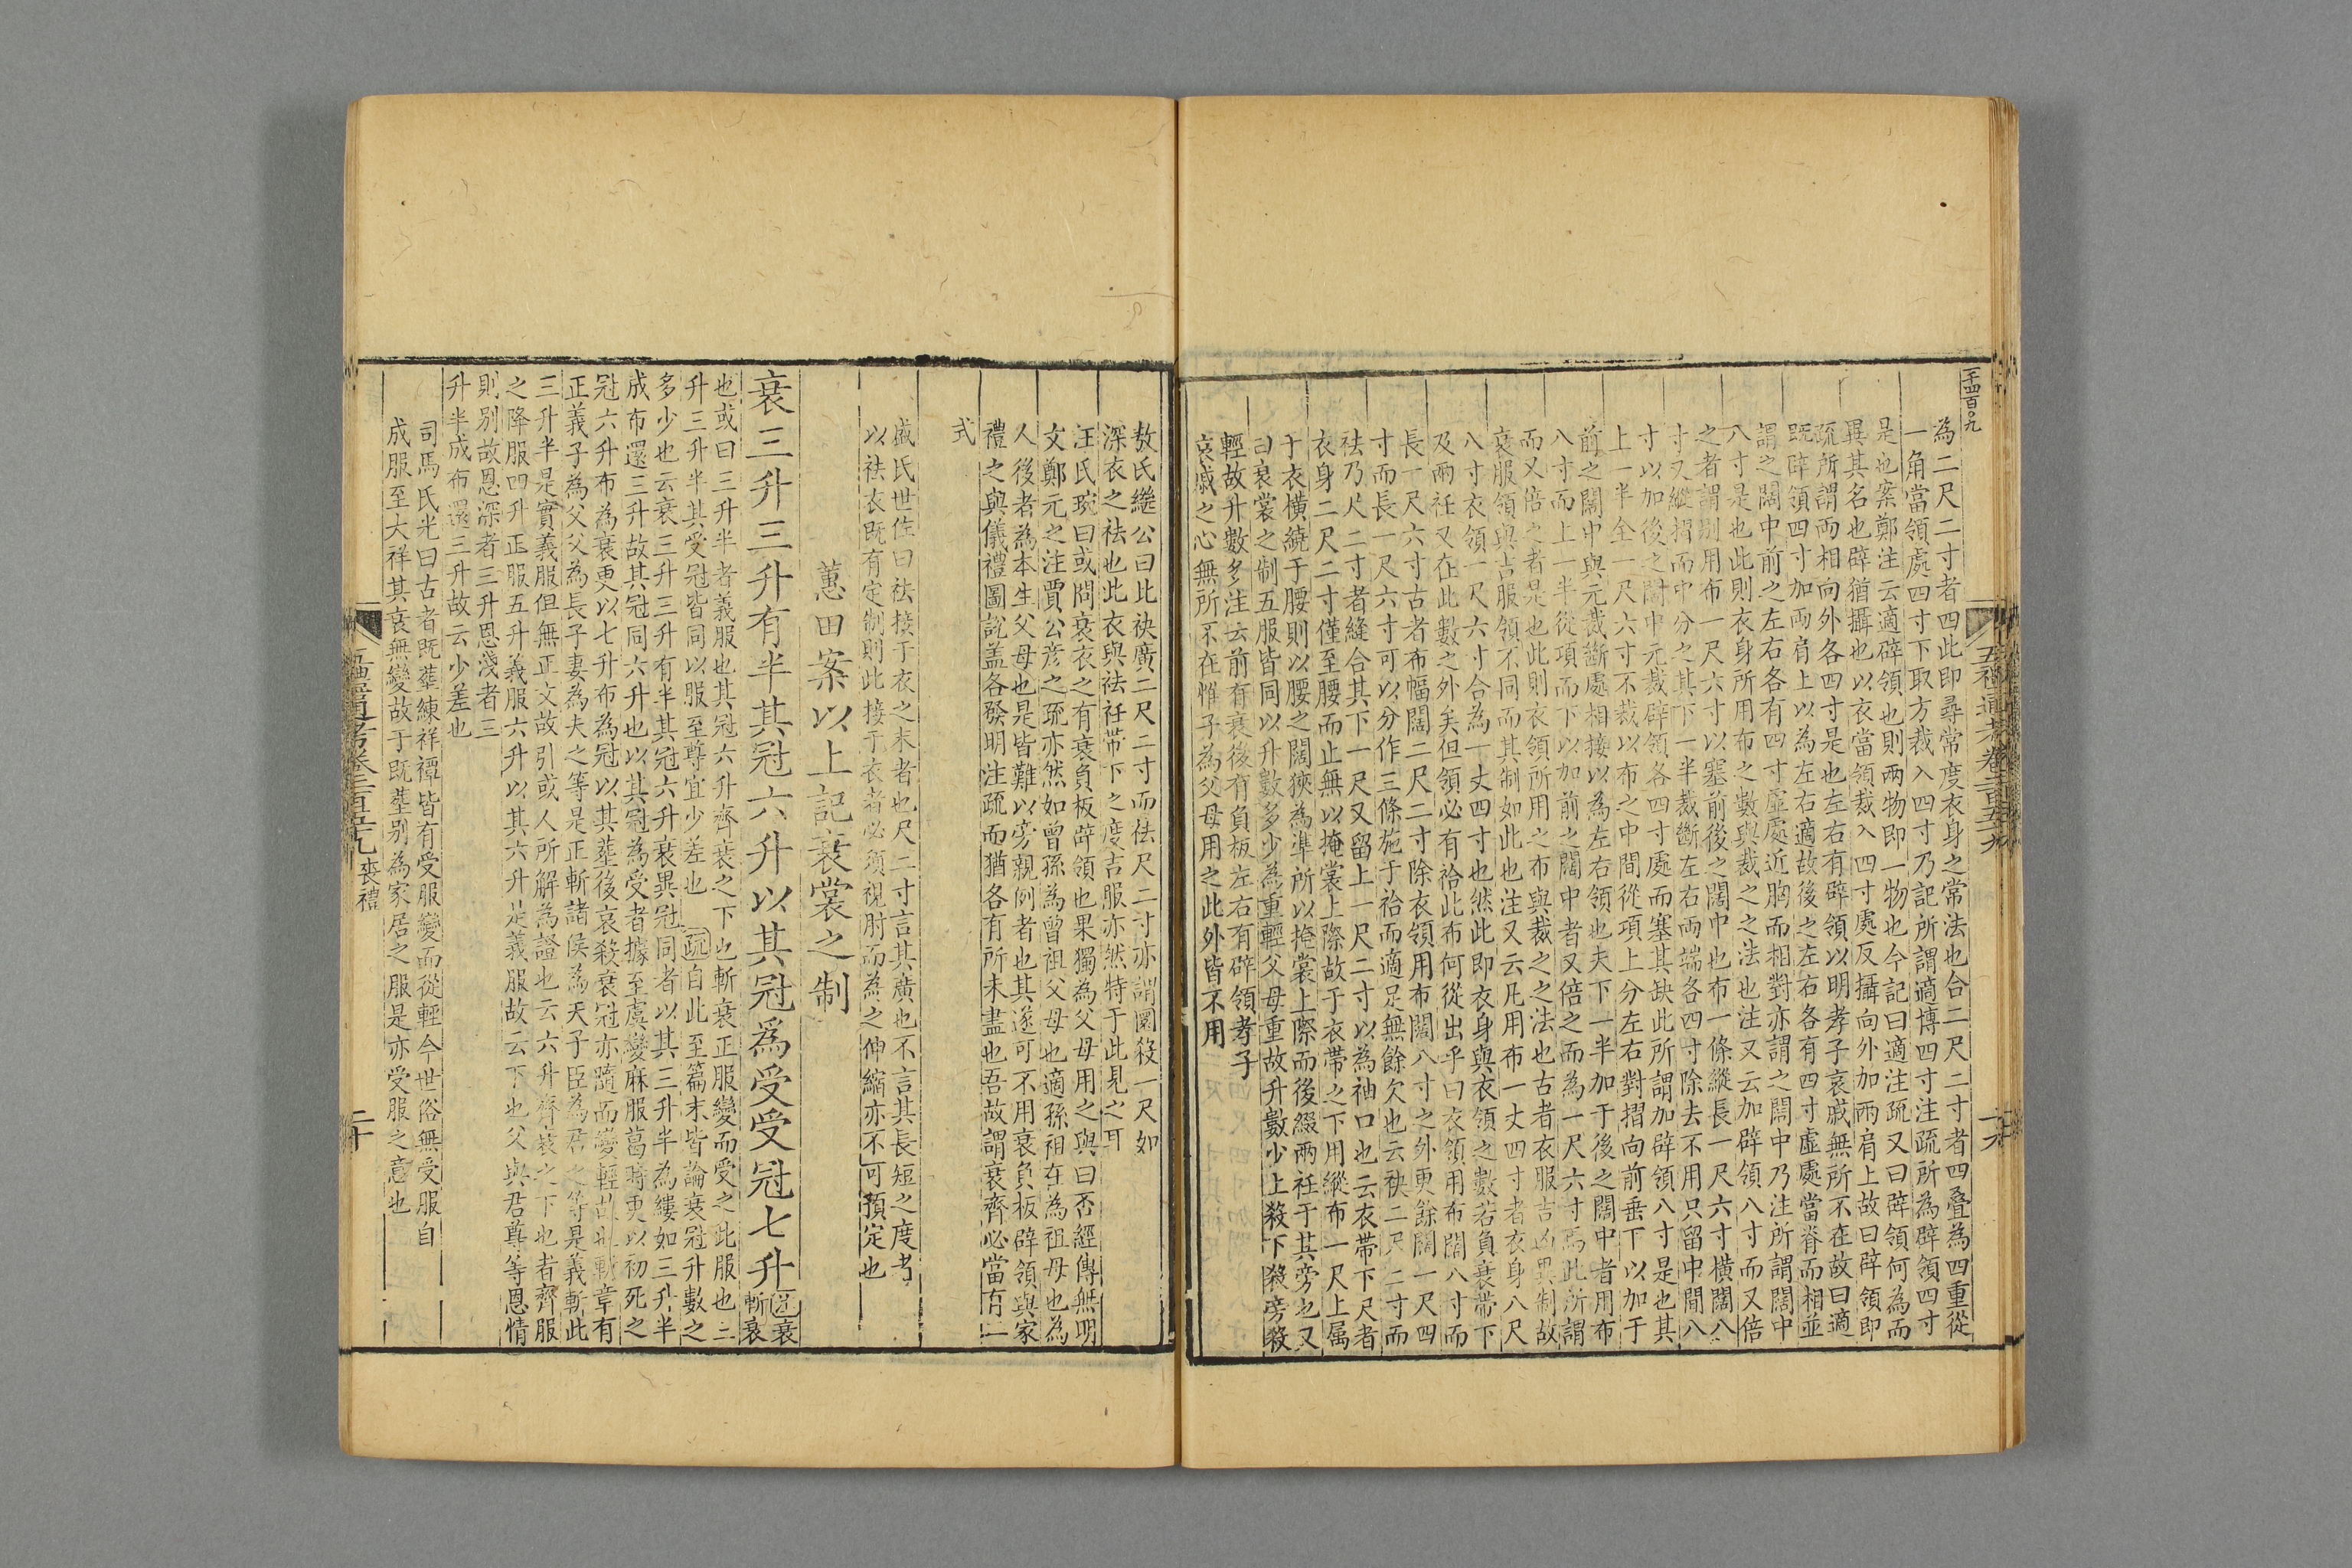 一千四百〇九
為二尺二寸者四此即尋常度衣身之常法也合二尺二寸者四疊為四重從
一角當領處四寸下取方裁入四寸乃記所謂適博四寸注疏所為辟領四寸
是也案鄭注云適辟領也則兩物即一物也今記曰適注疏又曰辟領何為而
異其名也辟猶攝也以衣當領裁入四寸處反攝向外加兩肩上故曰辟領即
疏所謂兩相向外各四寸是也左右有辟領以明孝子哀戚無所不在故曰適
既辟領四寸加兩肩上以為左右適故後之左右各有四寸虛處當脊而相並
謂之闊中前之左右各有四寸虛處近胸而相對亦謂之闊中乃注所謂闊中
八寸是也此則衣身所用布之數與裁之之法也注又云加辟領八寸而又倍
之者謂別用布一尺六寸以塞前後之闊中也布一條縱長一尺六寸橫闊八
寸又縱摺而中分之其下一半裁斷左右兩端各四寸除去不用只留中間八
寸以加後之闊中元裁辟領各四寸處而塞其缺此所謂加辟領八寸是也其
上一半全一尺六寸不裁以布之中間從項上分左右對摺向前垂下以加于
前之闊中與元裁斷處相接以為左右領也夫下一半加于後之闊中者用布
八寸而上一半從項而下以加前之闊中者又倍之而為一尺六寸焉此所謂
而又倍之者是也此則衣領所用之布與裁之之法也古者衣服吉凶異制故
衰服領與吉服領不同而其制如此也注又云凡用布一丈四寸者衣身八尺
八寸衣領一尺六寸合為一丈四寸也然此即衣身與衣領之數若負衰帶下
及兩衽又在此數之外矣但領必有袷此布何從出乎曰衣領用布闊八寸而
長一尺六寸古者布幅闊二尺二寸除衣領用布闊八寸之外更餘闊一尺四
寸而長一尺六寸可以分作三條施于袷而適足無餘欠也云袂二尺二寸而
袪乃尺二寸者縫合其下一尺又留上一尺二寸以為袖口也云衣帶下尺者
衣身二尺二寸僅至腰而止無以掩裳上際故于衣帶之下用縱布一尺上屬
于衣橫繞于腰則以腰之闊狹為準所以掩裳上際而後綴兩衽于其旁也又
曰衰裳之制五服皆同以升數多少為重輕父母重故升數少上殺下殺旁殺
輕故升數多注云前有衰後有負板左右有辟領孝子
哀戚之心無所不在惟子為父母用之此外皆不用
五禮通考卷二百五十九
十九
敖氏繼公曰此袂廣二尺二寸而袪尺二寸亦謂圜殺一尺如
深衣之袪也此衣與袪衽帶下之度吉服亦然特于此見之耳
汪氏琬曰或問衰衣之有衰負板辟領也果獨為父母用之與曰否經傳無明
文鄭元之注賈公彥之疏亦然如曾孫為曾祖父母也適孫祖在為祖母也為
人後者為本生父母也是皆難以旁親例者也其遂可不用衰負板辟領與家
禮之與儀禮圖說盖各發明注疏而猶各有所未盡也吾故謂衰齊必當有一
式
盛氏世佐曰袪接于衣之末者也尺二寸言其廣也不言其長短之度者
以袪衣既有定制則此接于衣者必須視肘而為之伸縮亦不可預定也
蕙田案以上記衰裳之制
衰三升三升有半其冠六升以其冠為受受冠七升
注衰
斬衰
也或曰三升半者義服也其冠六升齊衰之下也斬衰正服變而受之此服也二
升三升半其受冠皆同以服至尊宜少差也 疏自此至篇末皆論衰冠升數之
多少也云衰三升三升有半其冠六升衰異冠同者以其三升半為縷如三升半
成布還三升故其冠同六升也以其冠為受者據至虞變麻服葛時更以初死之
冠六升布為衰更以七升布為冠以其葬後哀殺衰冠亦隨而變輕故也斬章有
正義子為父父為長子妻為夫之等是正斬諸侯為天子臣為君之等是義斬此
三升半是實義服但無正文故引或人所解為證也云六升齊衰之下也者齊服
之降服四升正服五升義服六升以其六升是義服故云下也父與君尊等恩情
則別故恩深者三升恩淺者三
升半成布還三升故云少差也
司馬氏光曰古者既葬練祥禫皆有受服變而從輕今世俗無受服自
成服至大祥其哀無變故于既葬別為家居之服是亦受服之意也
五禮通考卷二百五十九 喪禮
二十